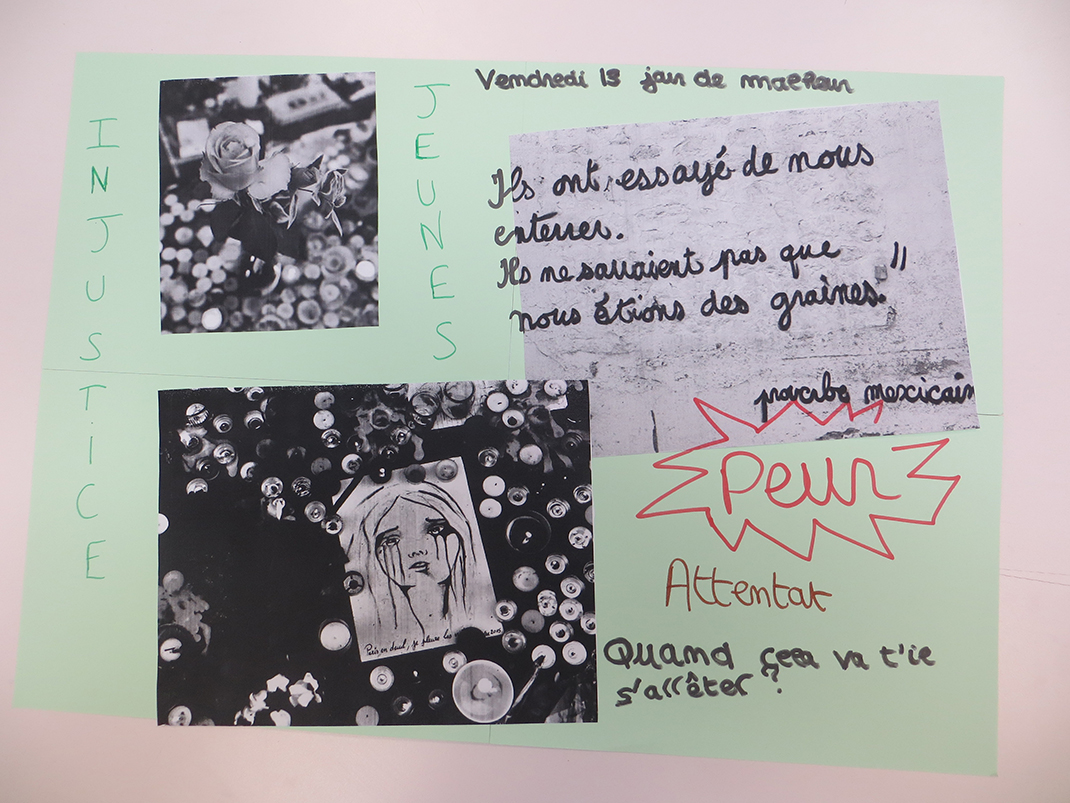 INJUSTICE
JEUNES
Vendredi 13 jour de malheur
Ils ont essayé de nous
enterrer.
Ils ne savaient pas que
nous étions des graines."
proverbe mexicain
Peur
Attentat
Quand cela va t'il
s'arrêter ?
Paris en deuil, je pleure les